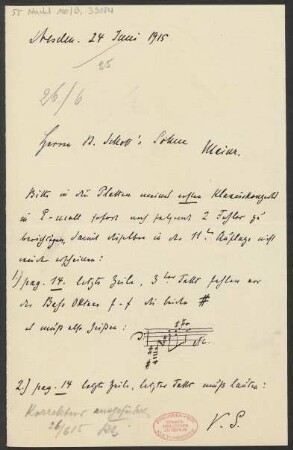 55 Nachl 110/B,
Dresden. 24 Juni 1915
26/6
Herrn B. Schott's Söhne
Mainz.
Bitte in die Platten meines ersten Klavierkonzerts
in F-moll sofort noch folgende 2 Fehler zu
berichtigen, damit dieselben in der 11ten Auflage nicht
wieder erscheinen:
1) pag. 14. letzte Zeile, 3ter Takt fehlen vor
der Bass Oktave f-f die beiden #
es muß also heißen: etc.
2.) pag. 14 letzte Zeile, letzter Takt muß lauten:
Korrektur ausgeführt
26/6 15
V. S.